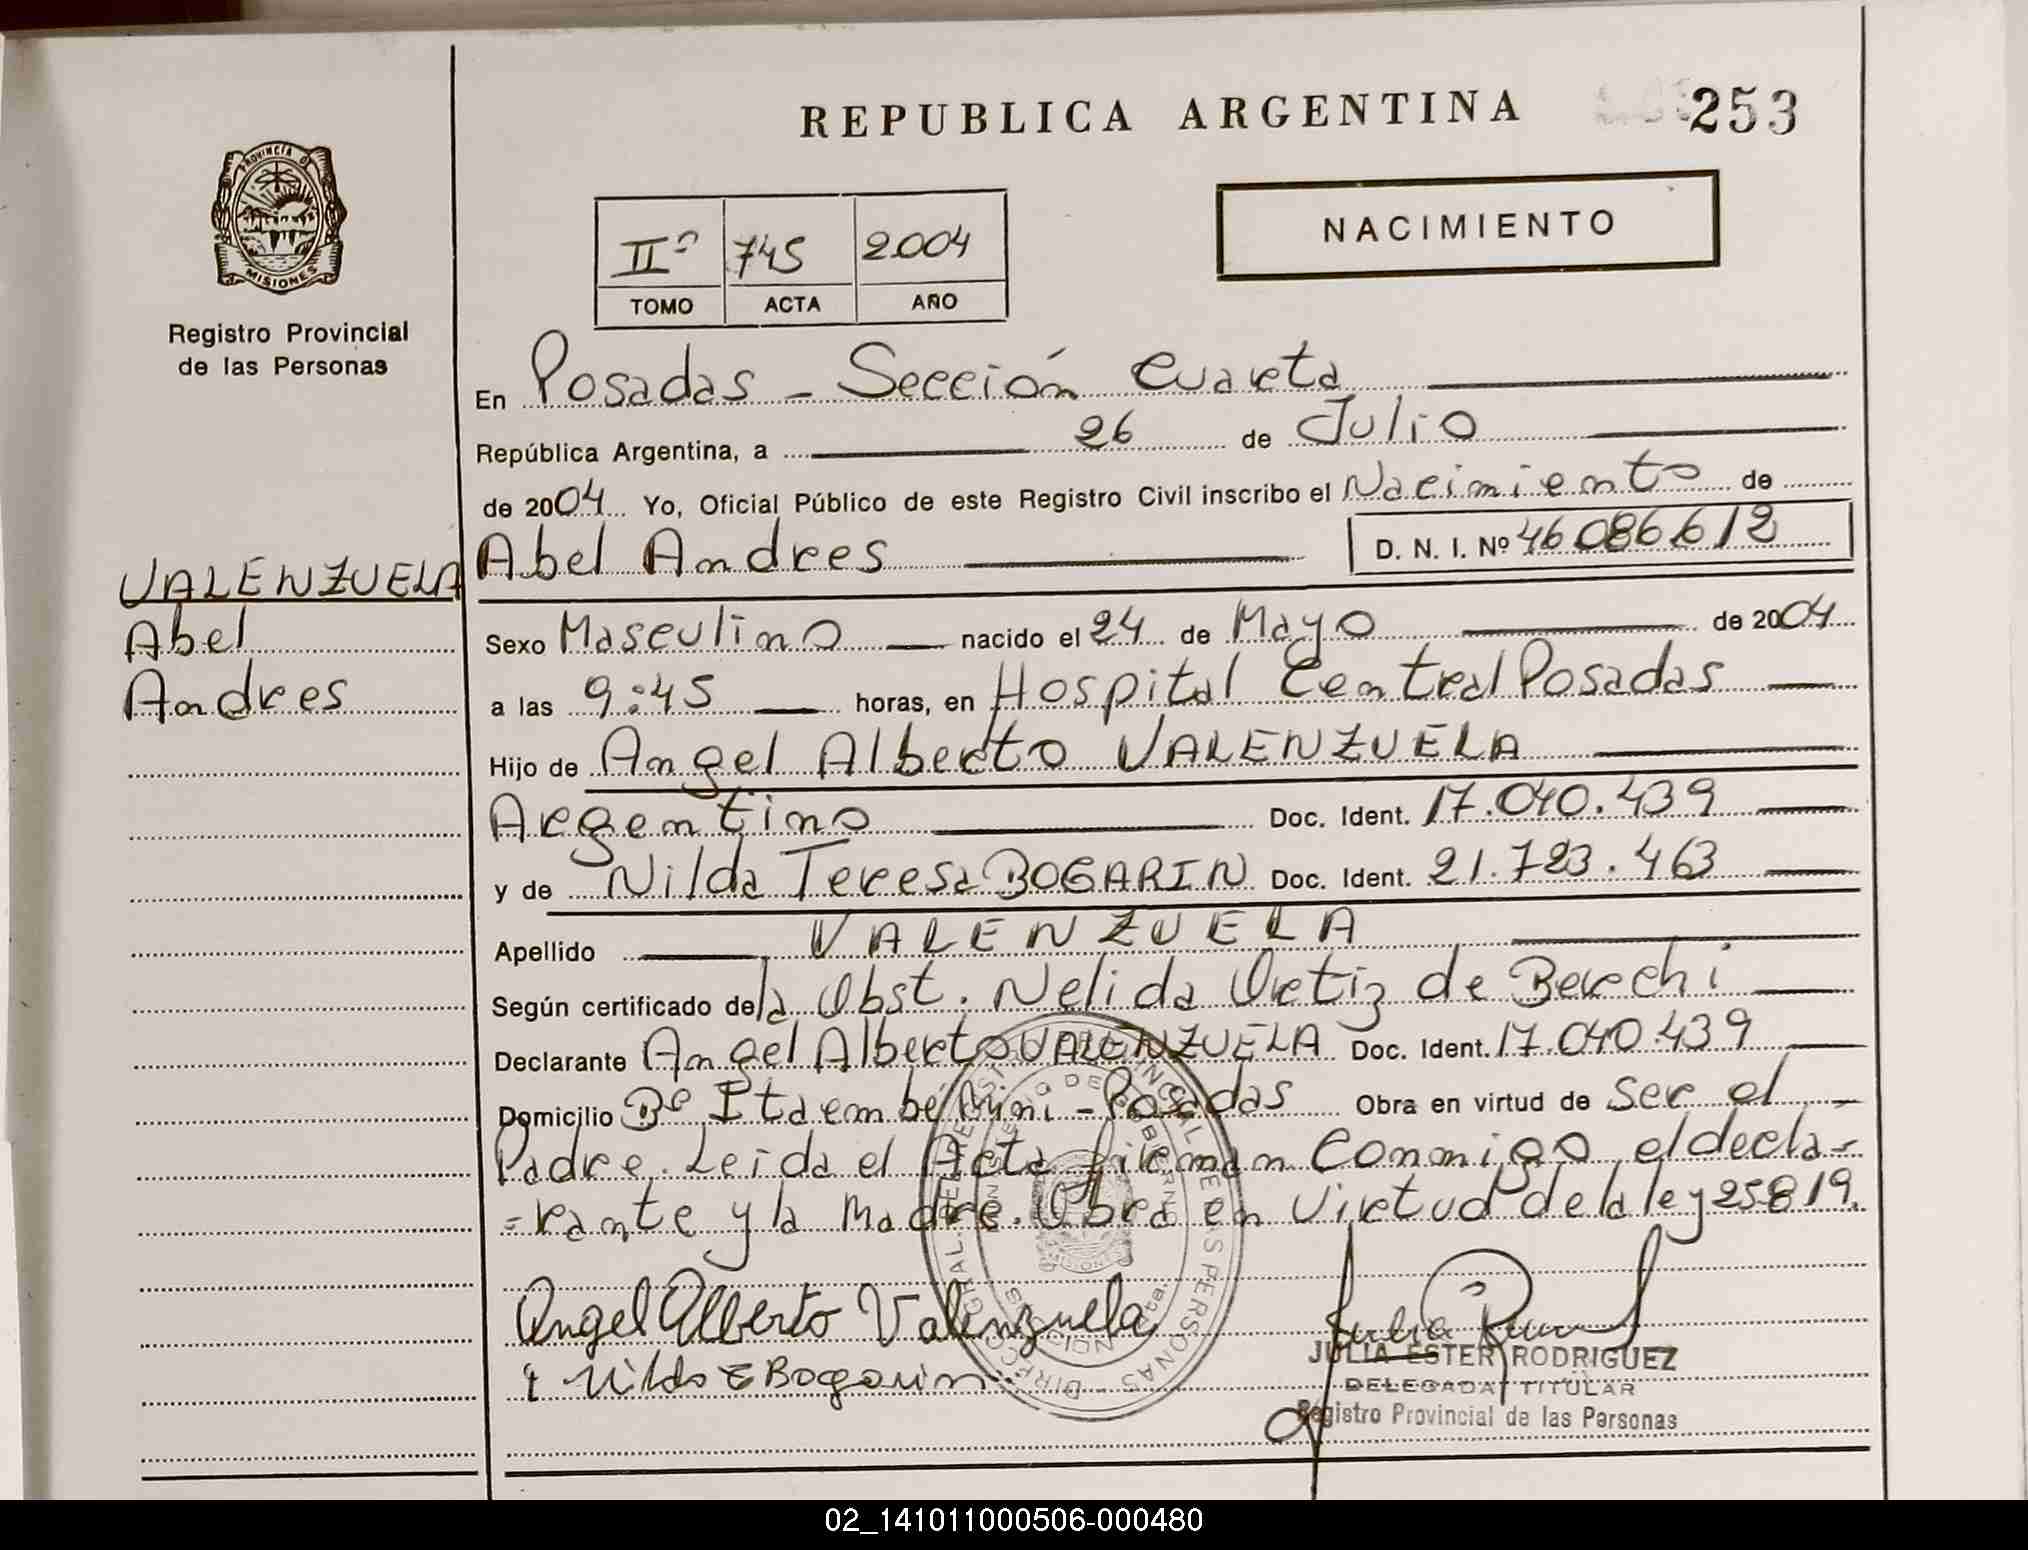 REPUBLICA ARGENTINA 253
PROVINCIA D
MISIONES
Registro Provincial
de las Personas
NACIMIENTO
IIº 745 2004
TOMO ACTA AÑO
En Posadas - Sección Cuarta
República Argentina, a 26 de Julio
de 2004 Yo, Oficial Público de este Registro Civil inscribo el Nacimiento de
Abel Andres D. N. I. Nº 46086612
VALENZUELA
Abel
Andres
Sexo Masculino nacido el 24 de Mayo de 2004
a las 9:45 horas, en Hospital Central Posadas
Hijo de Angel Alberto VALENZUELA
Argentino Doc. Ident. 17.040.439
y de Nilda Teresa BOGARIN Doc. Ident. 21.723.463
Apellido VALENZUELA
Según certificado de la Obst. Nelida Ortiz de Berechi
Declarante Angel Alberto VALENZUELA Doc. Ident. 17.040.439
Domicilio Bº Itaembé Mini - Posadas Obra en virtud de ser el
Padre. Leida el Acta firman conmigo el decla=
=rante y la Madre. Obra en virtud de la ley 25819.
Angel Alberto Valenzuela
Nilda Bogarin
JULIA ESTER RODRIGUEZ
DELEGADA TITULAR
Registro Provincial de las Personas
02_141011000506-000480